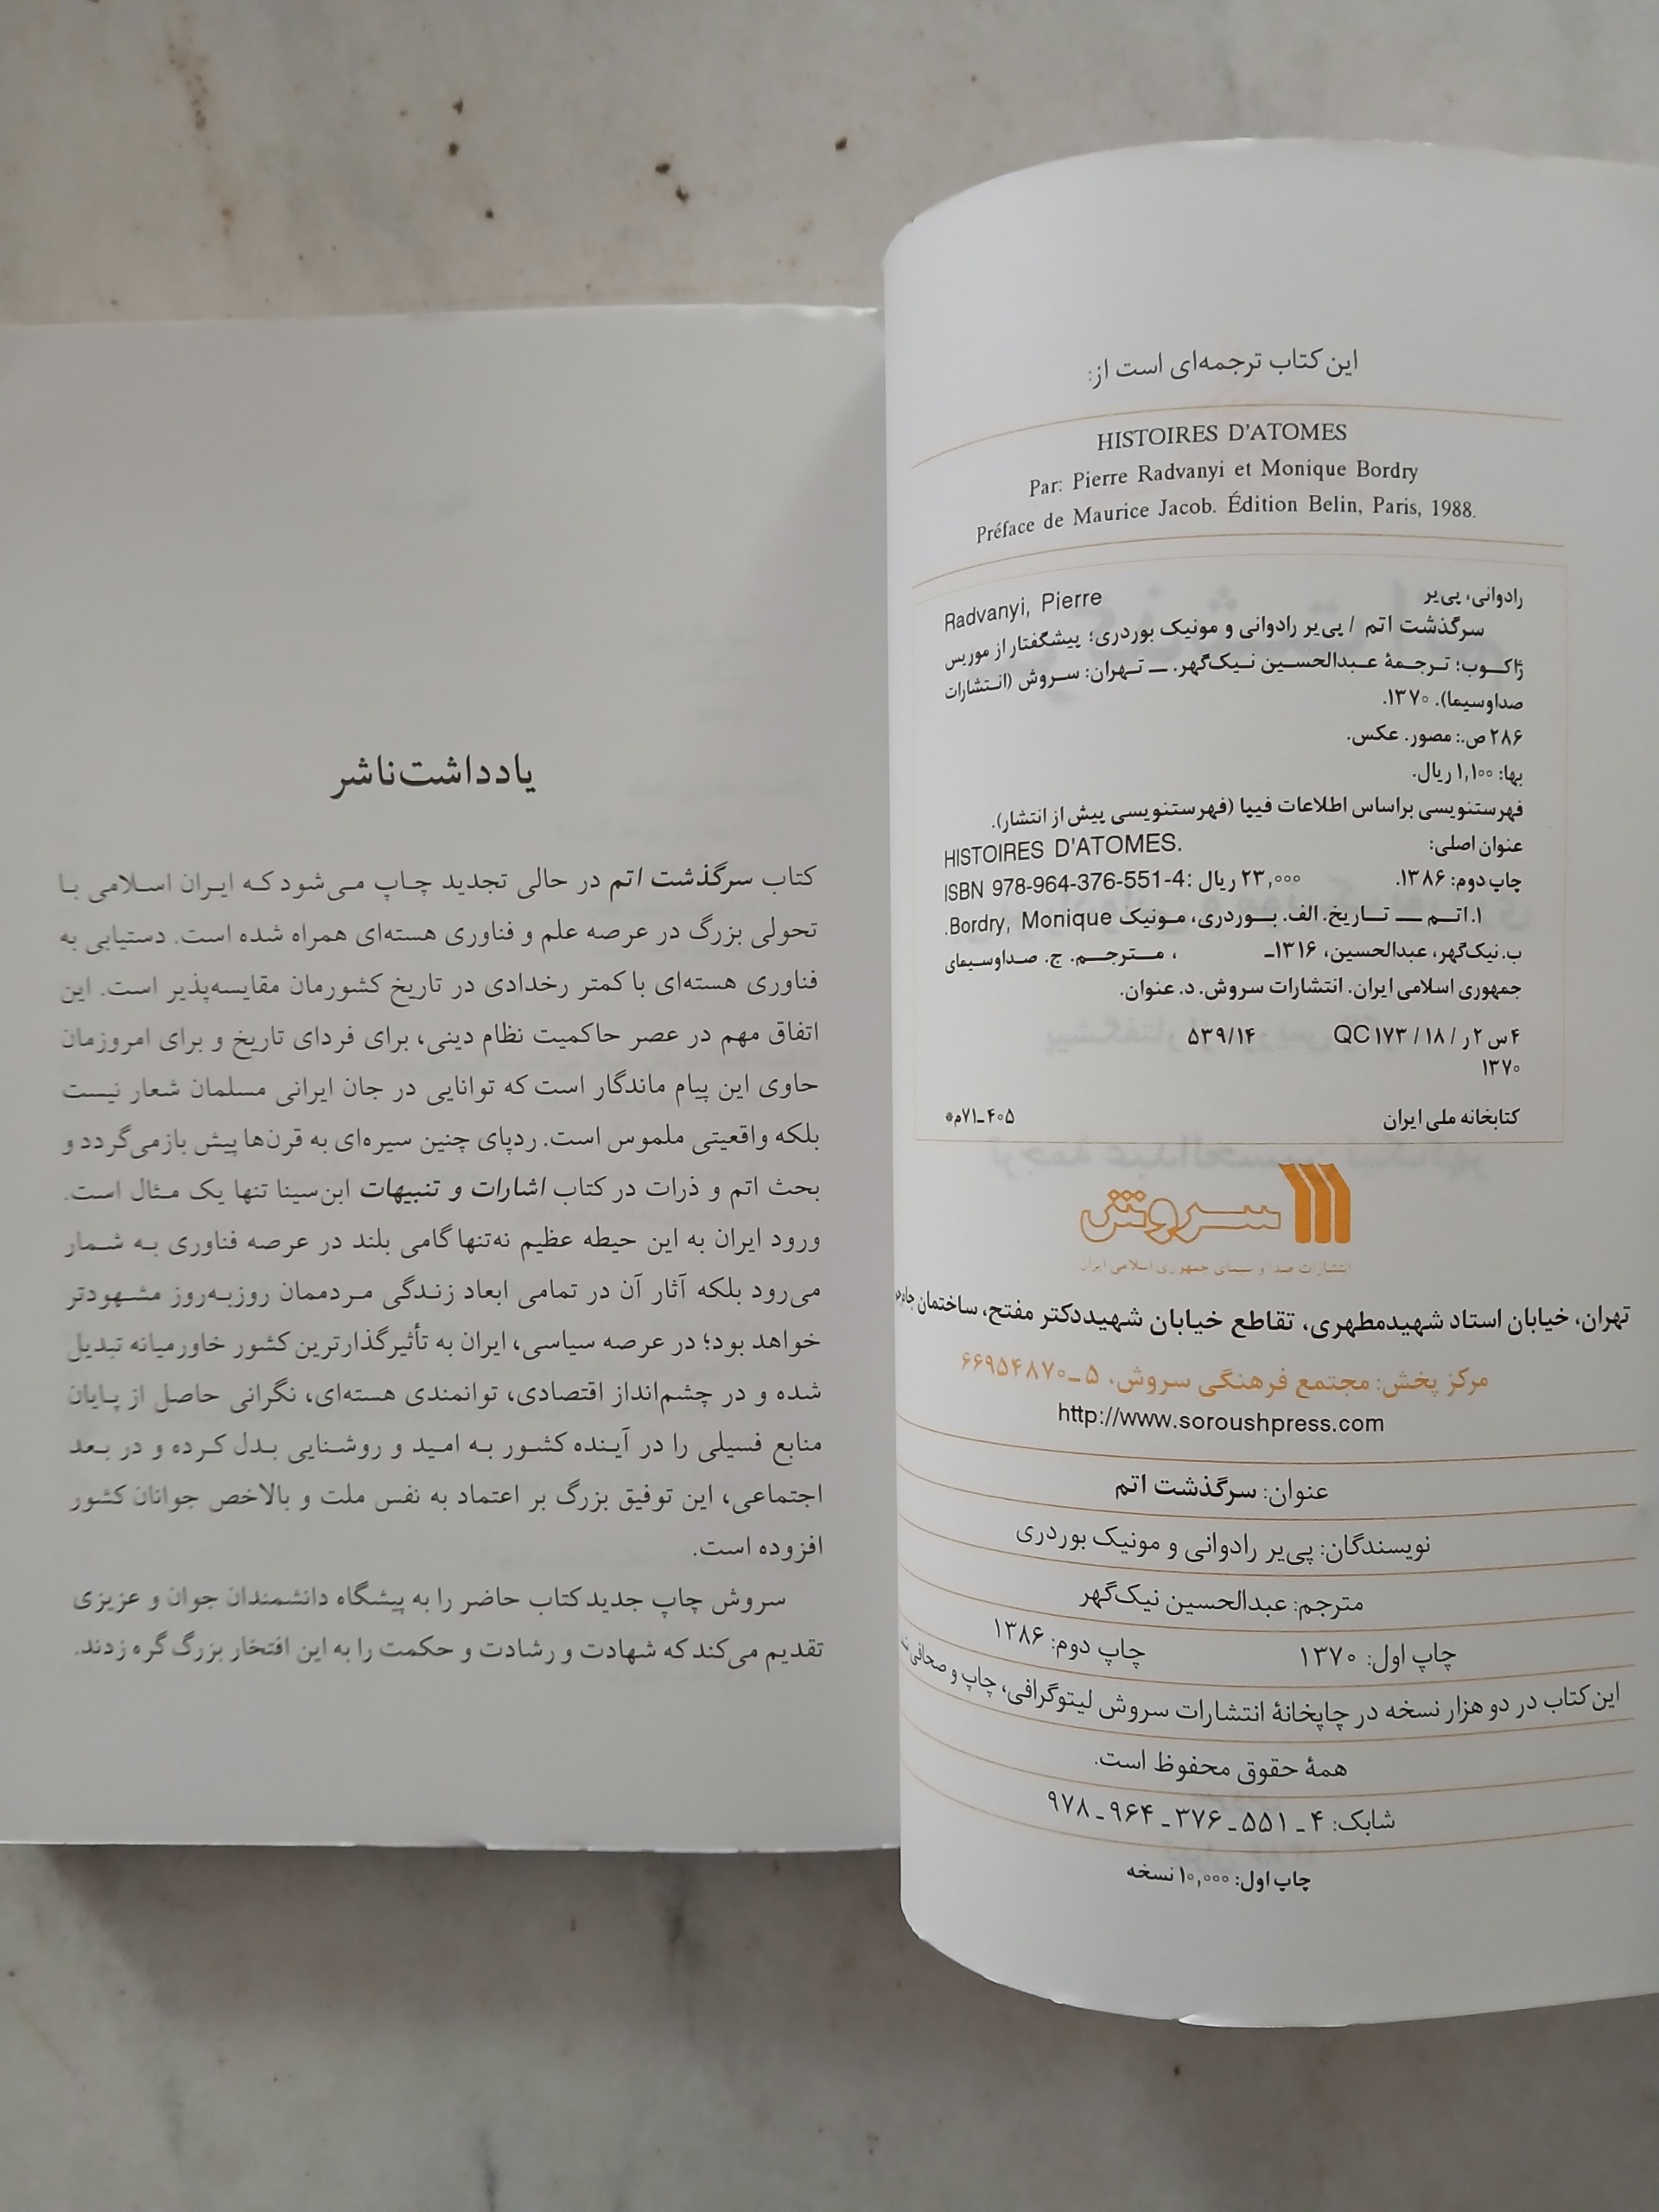 این کتاب ترجمه‌ای است از:
HISTOIRES D'ATOMES
Par: Pierre Radvanyi et Monique Bordry
Préface de Maurice Jacob. Édition Belin, Paris, 1988.
رادوانی، پی‌یر Radvanyi, Pierre
سرگذشت اتم / پی‌یر رادوانی و مونیک بوردری؛ پیشگفتار از موریس
ژاکوب؛ ترجمهٔ عبدالحسین نیک‌گهر. ــ تهران: سروش (انتشارات
صداوسیما). ۱۳۷۰.
۲۸۶ ص.: مصور. عکس.
بها: ۱,۱۰۰ ریال.
فهرستنویسی براساس اطلاعات فیپا (فهرستنویسی پیش از انتشار).
عنوان اصلی: HISTOIRES D'ATOMES.
چاپ دوم: ۱۳۸۶. ۲۳,۰۰۰ ریال :ISBN 978-964-376-551-4
۱. اتم ــ تاریخ. الف. بوردری، مونیک Bordry, Monique.
ب. نیک‌گهر، عبدالحسین، ۱۳۱۶ـ ، مترجم. ج. صداوسیمای
جمهوری اسلامی ایران. انتشارات سروش. د. عنوان.
۴س ۲ر / ۱۸ / ۱۷۳ QC ۵۳۹/۱۴
۱۳۷۰
کتابخانه ملی ایران ۴۰۵ـ۷۱م*
سروش
انتشارات صدا و سیمای جمهوری اسلامی ایران
تهران، خیابان استاد شهیدمطهری، تقاطع خیابان شهیددکتر مفتح، ساختمان
مرکز پخش: مجتمع فرهنگی سروش، ۵ـ۶۶۹۵۴۸۷۰
http://www.soroushpress.com
عنوان: سرگذشت اتم
نویسندگان: پی‌یر رادوانی و مونیک بوردری
مترجم: عبدالحسین نیک‌گهر
چاپ اول: ۱۳۷۰ چاپ دوم: ۱۳۸۶
این کتاب در دو هزار نسخه در چاپخانهٔ انتشارات سروش لیتوگرافی، چاپ و صحافی
همهٔ حقوق محفوظ است.
شابک: ۴ ـ ۵۵۱ ـ ۳۷۶ ـ ۹۶۴ ـ ۹۷۸
چاپ اول: ۱۰,۰۰۰ نسخه
یادداشت ناشر
کتاب سرگذشت اتم در حالی تجدید چاپ می‌شود که ایران اسلامی با
تحولی بزرگ در عرصه علم و فناوری هسته‌ای همراه شده است. دستیابی به
فناوری هسته‌ای با کمتر رخدادی در تاریخ کشورمان مقایسه‌پذیر است. این
اتفاق مهم در عصر حاکمیت نظام دینی، برای فردای تاریخ و برای امروزمان
حاوی این پیام ماندگار است که توانایی در جان ایرانی مسلمان شعار نیست
بلکه واقعیتی ملموس است. ردپای چنین سیره‌ای به قرن‌ها پیش بازمی‌گردد و
بحث اتم و ذرات در کتاب اشارات و تنبیهات ابن‌سینا تنها یک مثال است.
ورود ایران به این حیطه عظیم نه‌تنها گامی بلند در عرصه فناوری به شمار
می‌رود بلکه آثار آن در تمامی ابعاد زندگی مردممان روزبه‌روز مشهودتر
خواهد بود؛ در عرصه سیاسی، ایران به تأثیرگذارترین کشور خاورمیانه تبدیل
شده و در چشم‌انداز اقتصادی، توانمندی هسته‌ای، نگرانی حاصل از پایان
منابع فسیلی را در آینده کشور به امید و روشنایی بدل کرده و در بعد
اجتماعی، این توفیق بزرگ بر اعتماد به نفس ملت و بالاخص جوانان کشور
افزوده است.
سروش چاپ جدید کتاب حاضر را به پیشگاه دانشمندان جوان و عزیزی
تقدیم می‌کند که شهادت و رشادت و حکمت را به این افتخار بزرگ گره زدند.